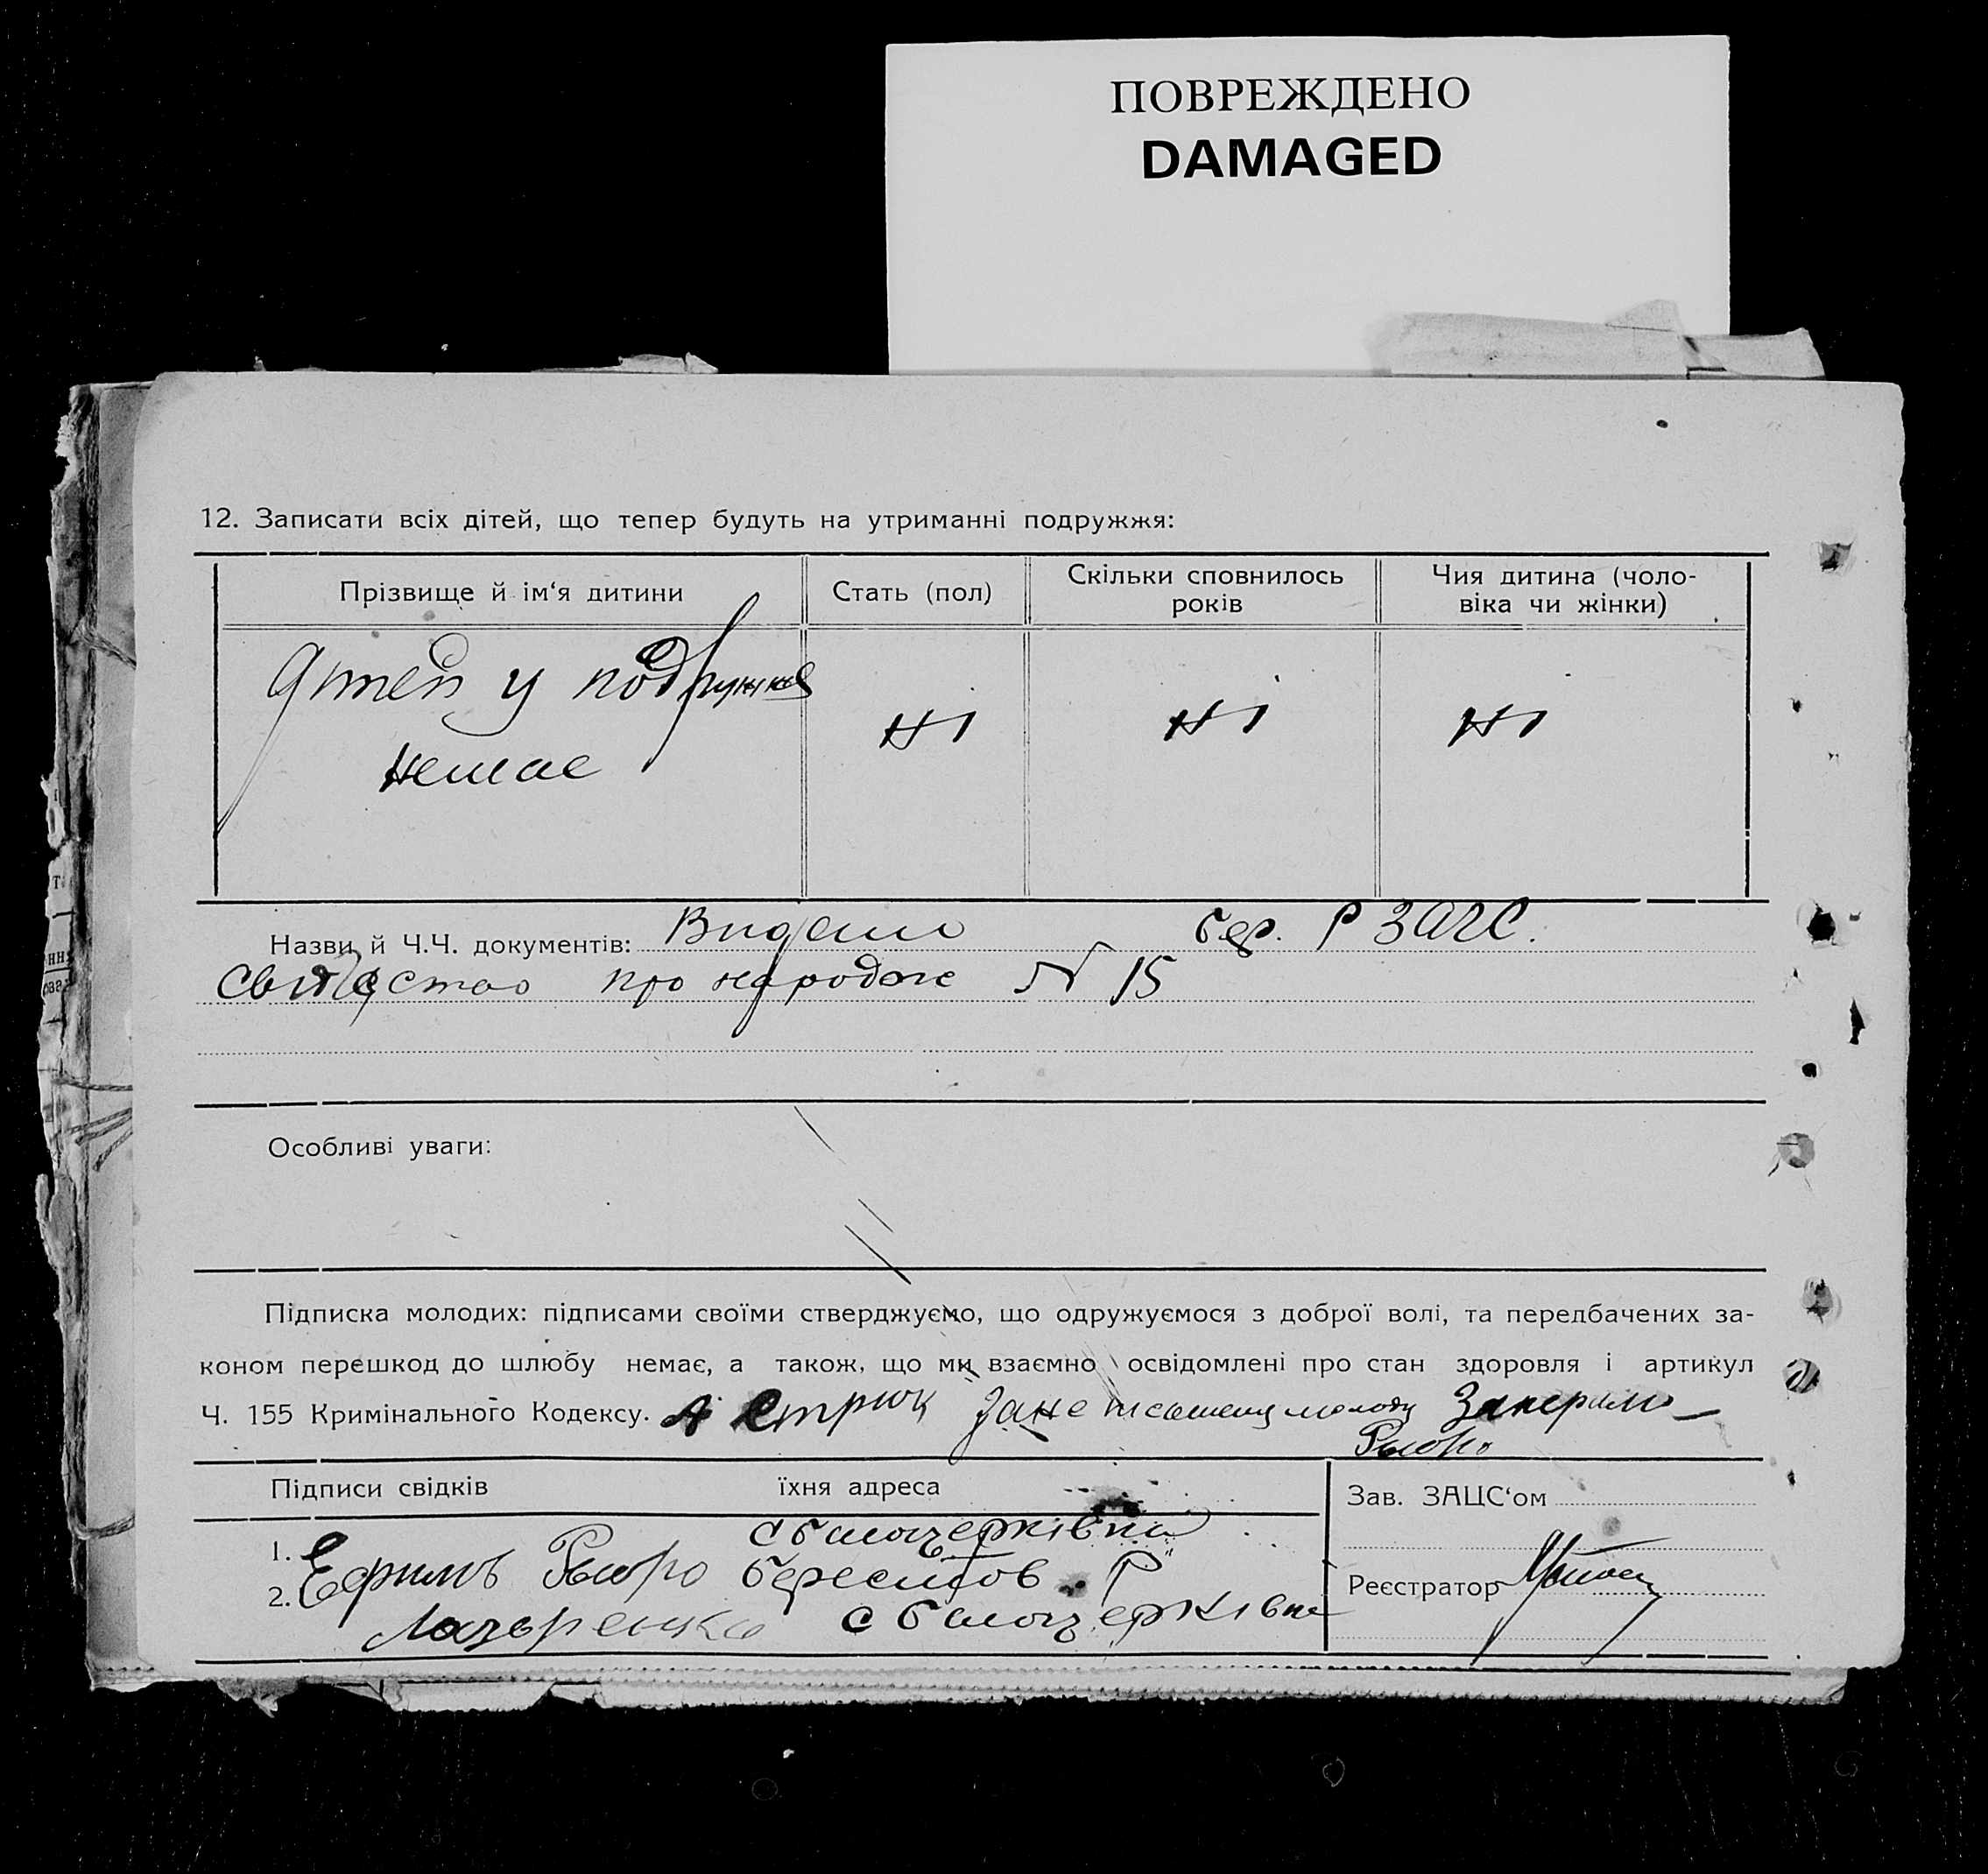 ПОВРЕЖДЕНО
DAMAGED
12. Записати всіх дітей, що тепер будуть на утриманні подружжя:
Прізвище й ім‘я дитини
Стать (пол)
Скільки сповнилось
років
Чия дитина (чоло-
віка чи жінки)
дітей у подружжя
немає
ні
ні
ні
Назви й Ч.Ч. документів: Видано Бер. Р ЗАГС.
про народж N 15
Особливі уваги:
Підписка молодих: підписами своїми стверджуємо, що одружуємося з доброї волі, та передбачених за-
коном перешкод до шлюбу немає, а також, що ми взаємно освідомлені про стан здоровля і артикул
Ч. 155 Кримінального Кодексу. А Стрюк
Підписи свідків
їхня адреса
Зав. ЗАЦС‘ом
1. Ефимъ
2.
Лазаренко
Реєстратор